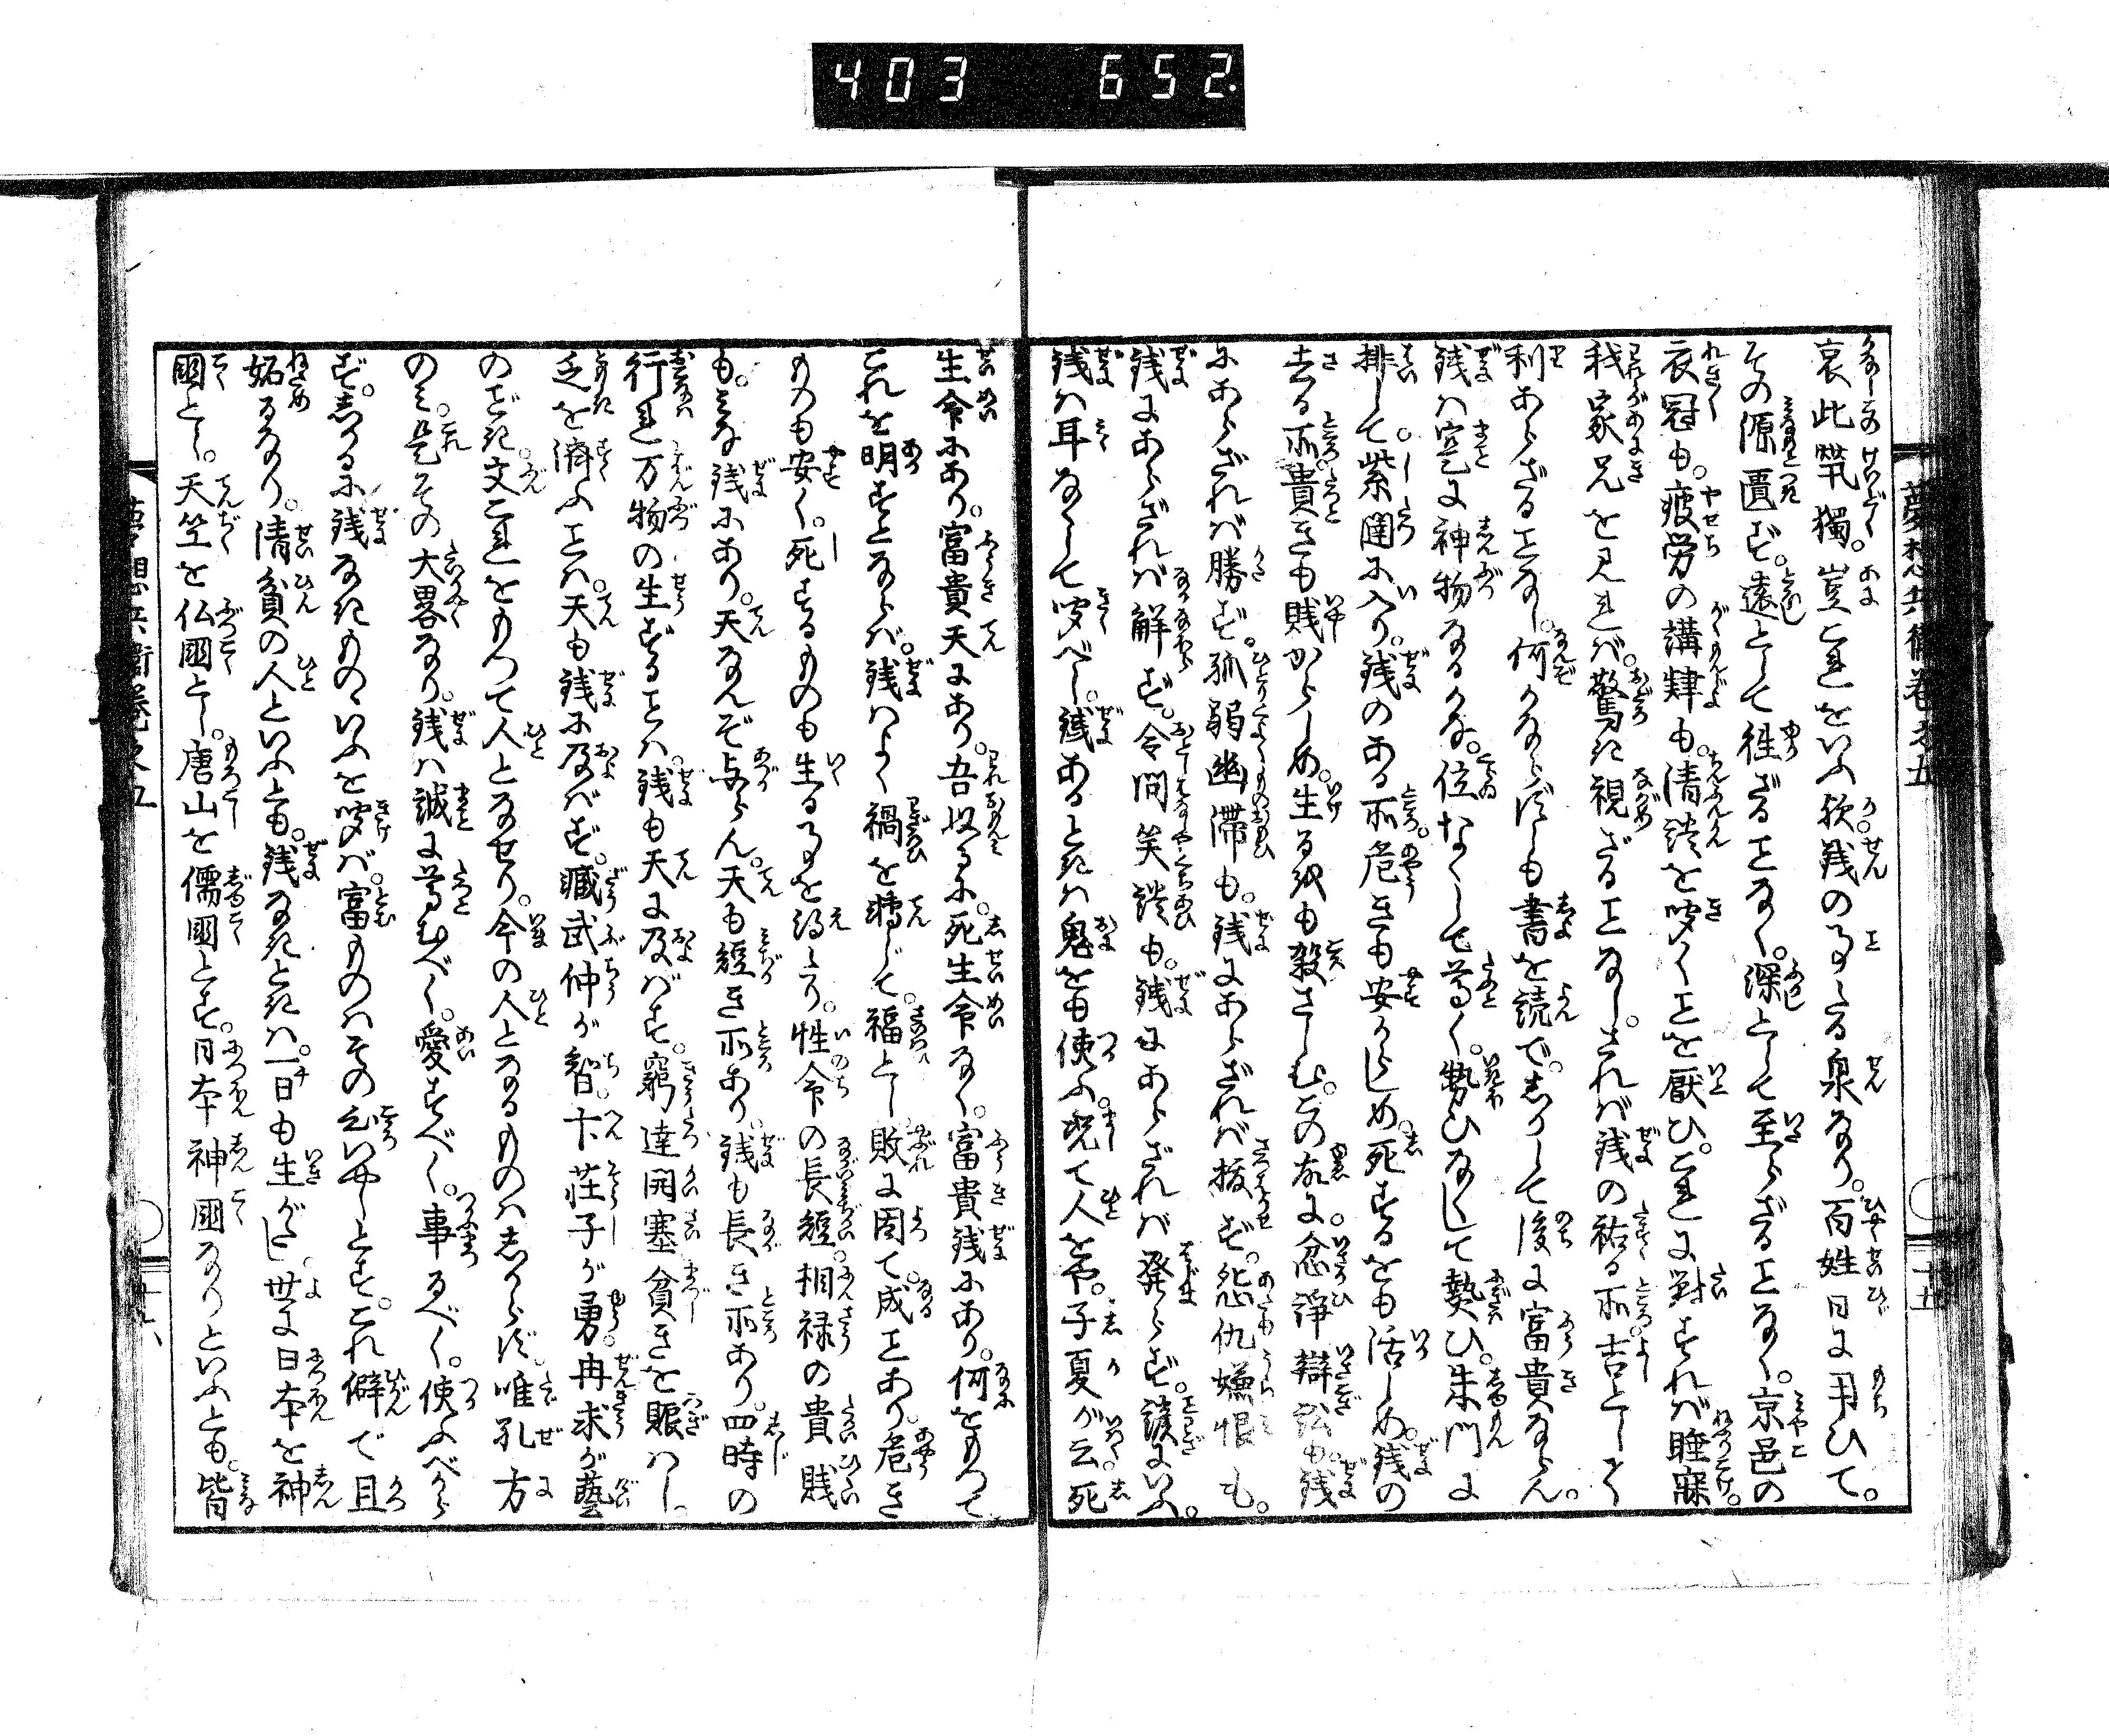 403 652
夢想兵衛巻之五
哀此煢獨。豈これをいふ欤。銭の事たる泉なり。百姓日に用ひて。
その源匱ず。遠として徃ざることなく。深として至らざることなく。京邑の
衣冠も。疲労の講肄も。清談を聞くことを厭ひ。これに対すれば睡寐。
我家兄を見れば。驚き視ざることなし。されば銭の祐る所吉として
利あらざることなし。何かならずしも書を読で。しかして後に富貴ならん。
銭は寔に神物なるかな。位なくして尊く。勢ひなくして熱ひ。朱門に
排して。紫闥に入り。銭のある所。危きも安からしめ。死するをも活しめ。銭の
去る所。貴きも賤からしめ。生るをも殺さしむ。この故に。忿諍辯訟も。銭
にあらざれば勝ず。孤弱幽滞も。銭にあらざれば抜ず。怨仇嫌恨も。
銭にあらざれば解ず。令問笑談も。銭にあらざれば発らず。諺にいふ。
銭は耳なくして聞べし。銭あるときは鬼をも使ふ。况て人をや。子夏が云。死
生命にあり。富貴天にあり。吾以るに。死生命なく。富貴銭にあり。何をもつて
これを明すとならば。銭はよく禍を転じて。福とし。敗に因て。成ことあり。危き
ものも安く。死するものも生る事を得たり。性命の長短。相禄の貴賤
も。みな銭にあり。天なんぞ与らん。天も短き所あり。銭も長き所あり。四時の
行れ万物の生ずることは。銭も天に及ばず。窮達開塞貧きを賑はし
乏を済ふことは。天も銭に及ばず。臧武仲が智。卞荘子が勇。冉求が藝
のごとき。文これをもつて人となせり。今の人となるものはしからず。唯孔方
のみ。是その大畧なり。銭は誠に尊むべく。愛すべく。事るべく。使ふべから
ず。しかるに銭なきものゝいふを聞ば。富ものはその心いやしとす。これ僻で且
妬るなり。清貧の人といふとも。銭なきときは。一日も生がたし。世に日本を神
國とし。天竺を仏國とし。唐山を儒國とす。日本神國なりといふとも。皆
夢想兵衛巻之五